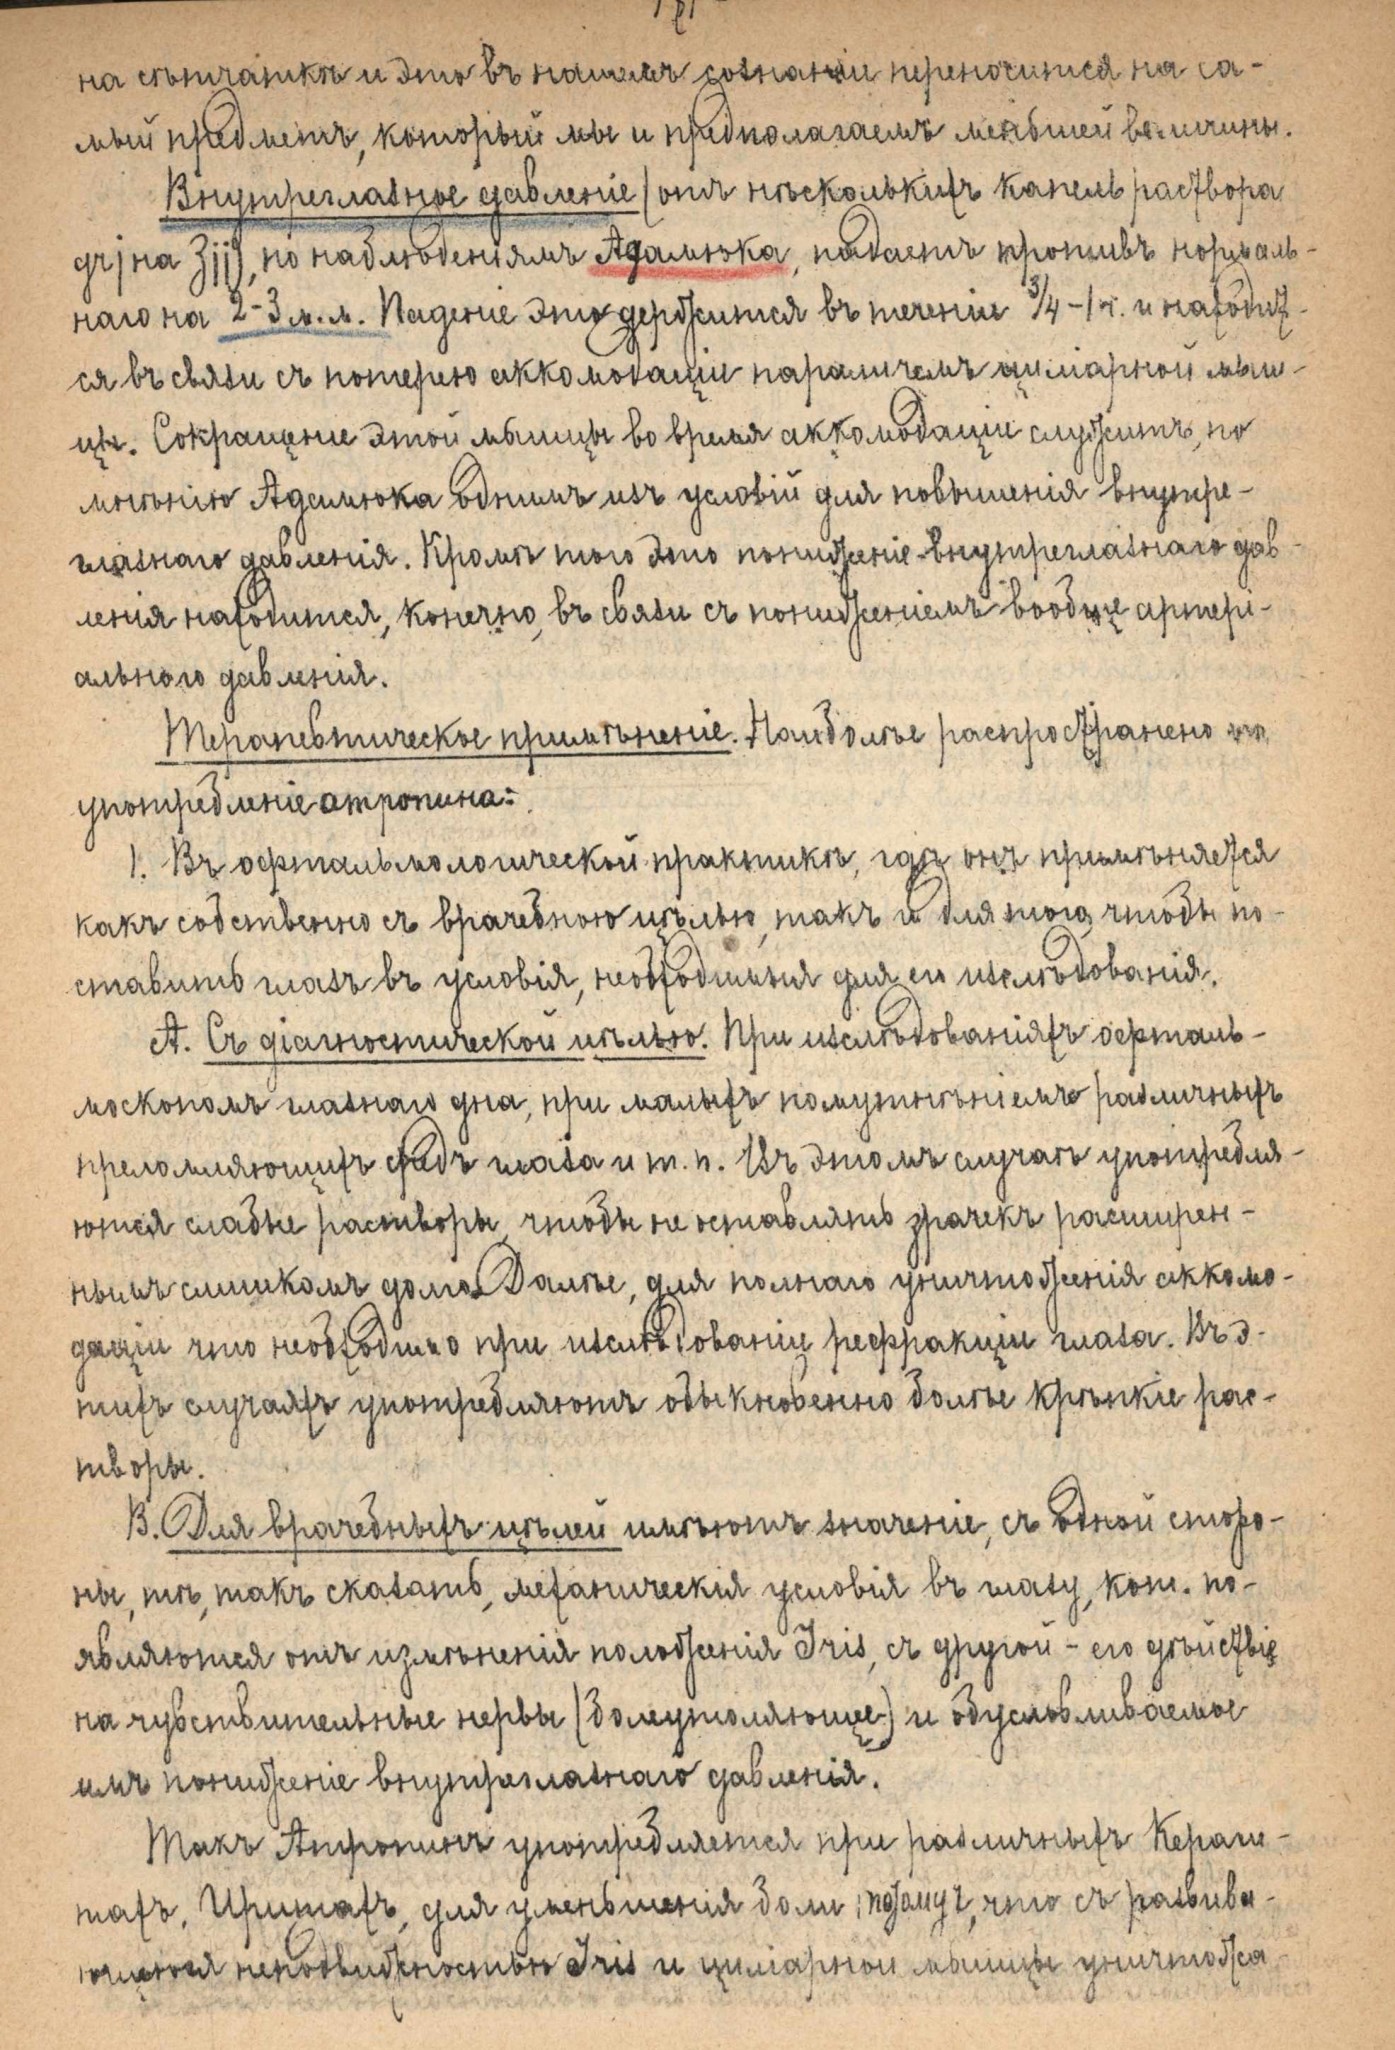 на сѣтчаткѣ и это въ нашемъ сознаніи переносится на са-
мый предметъ, который мы и предполагаемъ меньшей величины.
Внутреглазное давленіе (отъ нѣсколькихъ капель раствора
grj на ʒij), по наблюденіямъ Адамюка, падаетъ противъ нормаль-
наго на 2-3 м.м. Паденіе это держится въ теченіе 3/4-1 ч. и находит-
ся въ связи съ потерею аккомодаціи параличемъ циліарной мыш-
цы. Сокращеніе этой мышцы во время аккомодаціи служитъ, по
мнѣнію Адамюка однимъ изъ условій для повышенія внутре-
глазнаго давленія. Кромѣ того это пониженіе внутреглазнаго дав-
ленія находится, конечно, въ связи съ пониженіемъ вообще артері-
альнаго давленія.
Терапевтическое примѣненіе. Наиболѣе распространено
употребленіе атропина:
1. Въ офтальмологической практикѣ, гдѣ онъ примѣняется
какъ собственно съ врачебною цѣлью, такъ и для того, чтобы по-
ставить глазъ въ условія, необходимыя для его изслѣдованія.
А. Съ діагностической цѣлью. При изслѣдованіяхъ офталь-
москопомъ глазнаго дна, при малыхъ помутнѣніемъ различныхъ
преломляющихъ средъ глаза и т. п. Въ этомъ случаѣ употребля-
ются слабые растворы, чтобы не оставлять зрачекъ расширен-
нымъ слишкомъ долго. Далѣе, для полнаго уничтоженія аккомо-
даціи что необходимо при изслѣдованіи рефракціи глаза. Въ э-
тихъ случаяхъ употребляютъ обыкновенно болѣе крѣпкіе рас-
творы.
В. Для врачебныхъ цѣлей имѣютъ значеніе, съ одной сторо-
ны, тѣ, такъ сказать, механическія условія въ глазу, кот. по-
являются отъ измѣненія положенія Iris, съ другой - его дѣйствіе
на чувствительные нервы (болеутоляющее) и обусловливаемое
имъ пониженіе внутреглазнаго давленія.
Такъ Атропинъ употребляется при различныхъ Керати-
тахъ, Иритахъ, для уменьшенія боли, потому, что съ развива-
ющеюся неподвижностью Iris и циліарной мышцы уничтожа-